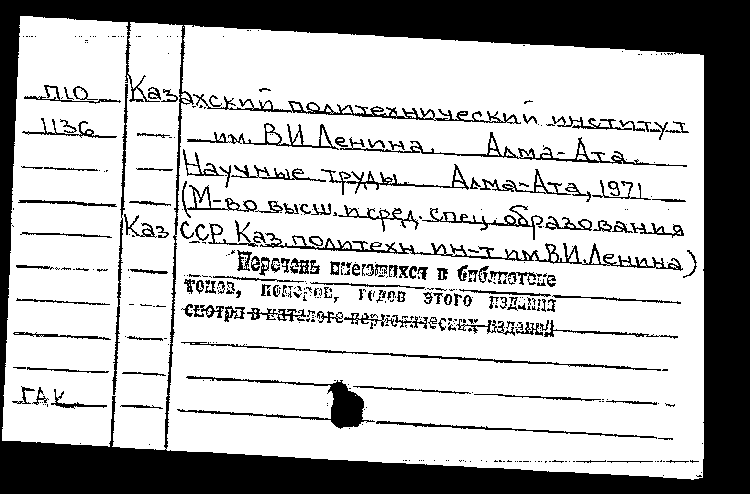 П10 Казахский политехнический институт
1136 им. В.И Ленина. Алма-Ата.
Научные труды. Алма-Ата, 1971
(М-во высш. и сред. спец. образования
Каз ССР. Каз. политехн. ин-т им В.И.Ленина)
Перечень имеющихся в библиотеке
томов, номеров, годов этого издания
смотри в каталоге периодических изданий
ГАК